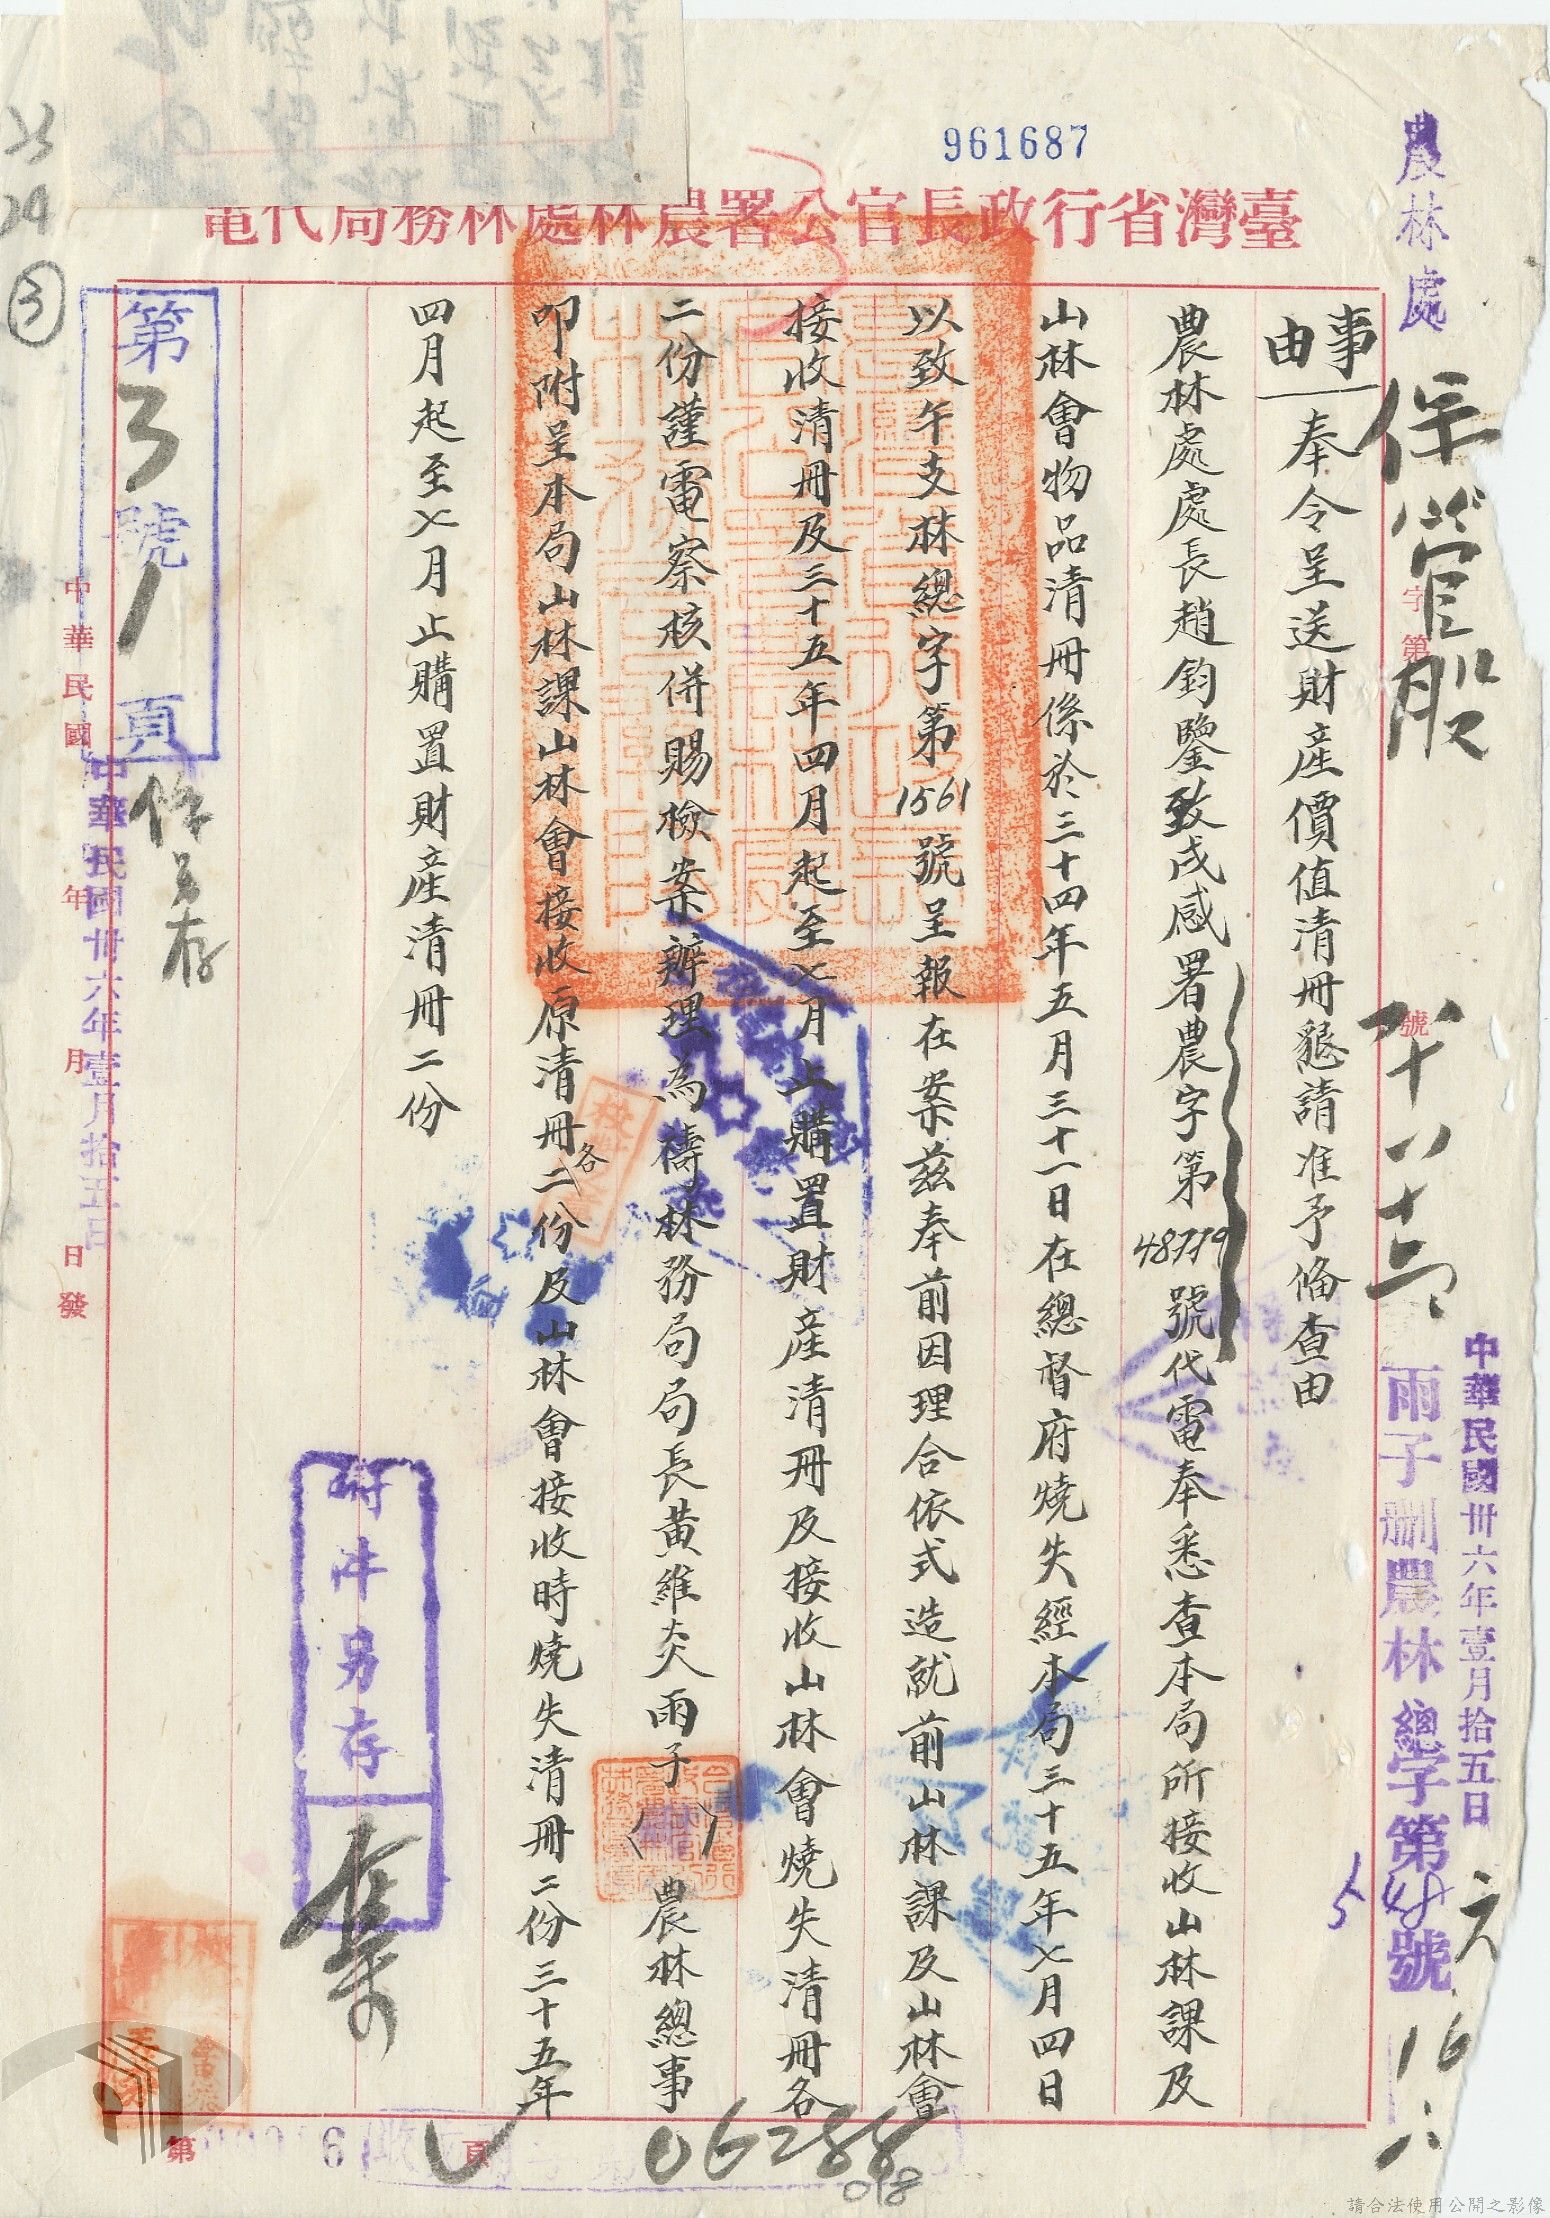 961687
臺灣省行政長官公署農林處林務局代電
農林處
保管股
字第
號
中華民國卅六年壹月拾五日
雨子刪農林總字第48號
事由
奉令呈送財產價值清冊懇請准予備查由
農林處處長趙鈞鑒致戌感署農字第48779號代電奉悉查本局所接收山林課及
山林會物品清冊係於三十四年五月三十一日在總督府燒失經本局三十五年七月四日
以致午支林總字第1561號呈報在案茲奉前因理合依式造就前山林課及山林會
接收清冊及三十五年四月起至七月止購置財產清冊及接收山林會燒失清冊各
二份謹電察核併賜檢案辦理為禱林務局局長黃維炎雨子( )農林總事
叩附呈本局山林課山林會接收原清冊各二份及山林會接收時燒失清冊二份三十五年
四月起至七月止購置財產清冊二份
附件另存
第31號
頁
中華民國 年 月 日發
中華民國卅六年壹月拾五日
第 6 頁
06288
018
24
3
請合法使用公開之影像